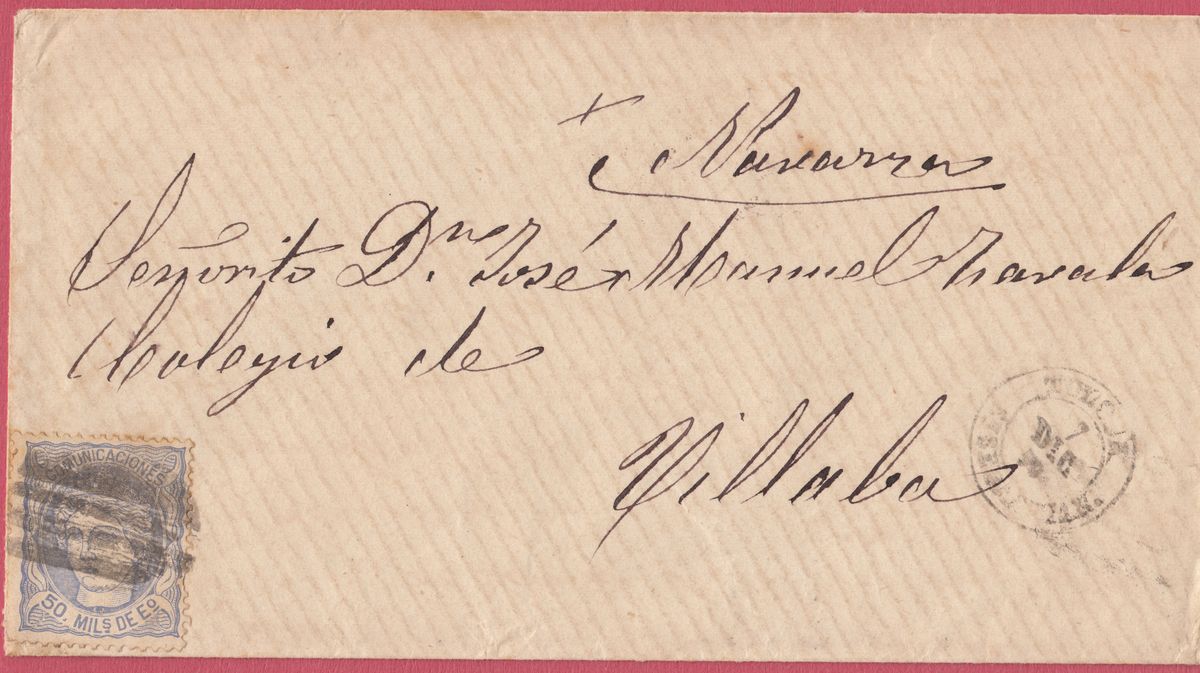 Navarra
Señorito Dn. José Manuel Zavala
Colegio de
Villaba
COMUNICACIONES
50. MILS. DE EO.
7
DIC